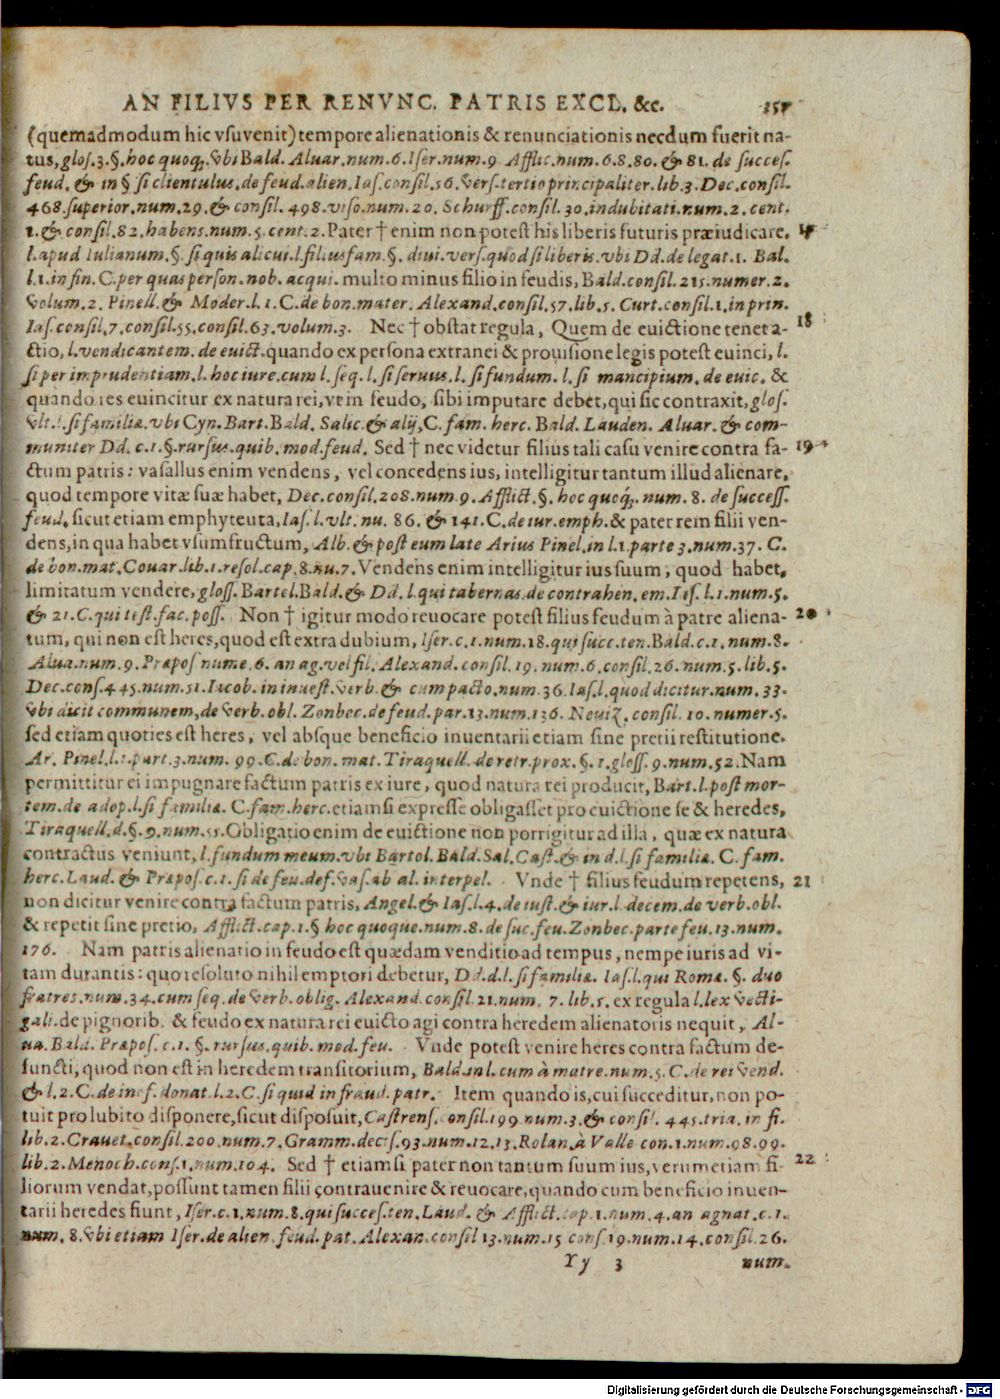 AN FILIVS PER RENVNC. PATRIS EXCL. &c. 357
(quemadmodum hic vsuvenit) tempore alienationis & renunciationis necdum fuerit na-
tus, glos. 3. §. hoc quoq́. vbi Bald. Aluar. num. 6. Iser. num. 9. Afflic. num. 6. 8. 80. & 81. de succes.
feud. & in § si clientulus. de feud. alien. Ias. consil. 56. vers. tertio principaliter. lib. 3. Dec. consil.
468. superior. num. 29. & consil. 498. viso. num. 20. Schurff. consil. 30. indubitati. num. 2. cent.
1. & consil. 82. habens. num. 5. cent. 2. Pater † enim non potest his liberis futuris præiudicare.
l. apud Iulianum. §. si quis alicui. l. filiusfam. §. diui. vers. quod si liberis. vbi Dd. de legat. 1. Bal.
l. 1. in fin. C. per quas person. nob. acqui. multo minus filio in feudis, Bald. consil. 215. numer. 2.
volum. 2. Pinell. & Moder. l. 1. C. de bon. mater. Alexand. consil. 57. lib. 5. Curt. consil. 1. in prin.
Ias. consil. 7. consil. 55. consil. 63. volum. 3. Nec † obstat regula, Quem de euictione tenet a- 18
ctio, l. vendicantem. de euict. quando ex persona extranei & prouisione legis potest euinci, l.
si per imprudentiam. l. hoc iure. cum l. seq. l. si seruus. l. si fundum. l. si mancipium. de euic. &
quando res euincitur ex natura rei, vt in feudo, sibi imputare debet, qui sic contraxit, glos.
vlt. l. si familiæ. vbi Cyn. Bart. Bald. Salic. & alij, C. fam. herc. Bald. Lauden. Aluar. & com-
muniter Dd. c. 1. §. rursus. quib. mod. feud. Sed † nec videtur filius tali casu venire contra fa- 19
ctum patris: vasallus enim vendens, vel concedens ius, intelligitur tantum illud alienare,
quod tempore vitæ suæ habet, Dec. consil. 208. num. 9. Afflict. §. hoc quoq́. num. 8. de success.
feud. sicut etiam emphyteuta, Ias. l. vlt. nu. 86. & 141. C. de iur. emph. & pater rem filii ven-
dens, in qua habet vsumfructum, Alb. & post eum late Arius Pinel. in l. 1. parte 3. num. 37. C.
de bon. mat. Couar. lib. 1. resol. cap. 8. nu. 7. Vendens enim intelligitur ius suum, quod habet,
limitatum vendere, gloss. Bartel. Bald. & Dd. l. qui tabernas. de contrahen. em. Ias. l. 1. num. 5.
& 21. C. qui test. fac. poss. Non † igitur modo reuocare potest filius feudum à patre aliena- 20
tum, qui non est heres, quod est extra dubium, Iser. c. 1. num. 18. qui succ. ten. Bald. c. 1. num. 8.
Alua. num. 9. Præpos nume. 6. an ag. vel fil. Alexand. consil. 19. num. 6. consil. 26. num. 5. lib. 5.
Dec. cons. 445. num. 51. Iacob. in inuest. verb. & cum pacto. num. 36. Ias. l. quod dicitur. num. 33.
vbi dicit communem, de verb. obl. Zonbec. de feud. par. 13. num. 136. Neuiz. consil. 10. numer. 5.
sed etiam quoties est heres, vel absque beneficio inuentarii etiam sine pretii restitutione.
Ar. Pinel. l. 1. part. 3. num. 99. C. de bon. mat. Tiraquell. de retr. prox. §. 1. gloss. 9. num. 52. Nam
permittitur ei impugnare factum patris ex iure, quod natura rei producit, Bart. l. post mor-
tem. de adop. l. si familiæ. C. fam. herc. etiamsi expresse obligasset pro euictione se & heredes,
Tiraquell. d. §. 9. num. 55. Obligatio enim de euictione non porrigitur ad illa, quæ ex natura
contractus veniunt, l. fundum meum. vbi Bartol. Bald. Sal. Cast. & in d. l. si familiæ. C. fam.
herc. Laud. & Præpos. c. 1. si de feu. def. vas. ab al. interpel. Vnde † filius feudum repetens, 21
non dicitur venire contra factum patris, Angel. & Ias. l. 4. de iust. & iur. l. decem. de verb. obl.
& repetit sine pretio, Afflict. cap. 1. § hoc quoque. num. 8. de suc. feu. Zonbec. parte feu. 13. num.
176. Nam patris alienatio in feudo est quædam venditio ad tempus, nempe iuris ad vi-
tam durantis: quo resoluto nihil emptori debetur, Dd. d. l. si familiæ. Ias. l. qui Romæ. §. duo
fratres. num. 34. cum seq. de verb. oblig. Alexand. consil. 21. num. 7. lib. 5. ex regula l. lex vecti-
gali. de pignorib. & feudo ex natura rei euicto agi contra heredem alienatoris nequit, Al-
ua. Bald. Præpos. c. 1. §. rursus. quib. mod. feu. Vnde potest venire heres contra factum de-
functi, quod non est in heredem transitorium, Bald. in l. cum à matre. num. 5. C. de rei vend.
& l. 2. C. de inof. donat. l. 2. C. si quid in fraud. patr. Item quando is, cui succeditur, non po-
tuit pro lubito disponere, sicut disposuit, Castrens. consil. 199. num. 3. & consil. 445. tria. in fi.
lib. 2. Crauet. consil. 200. num. 7. Gramm. decis. 93. num. 12. 13. Rolan. à Valle con. 1. num. 98. 99.
lib. 2. Menoch. cons. 1. num. 104. Sed † etiamsi pater non tantum suum ius, verumetiam fi- 22
liorum vendat, possunt tamen filii contrauenire & reuocare, quando cum beneficio inuen-
tarii heredes fiunt, Iser. c. 1. num. 8. qui succes. ten. Laud. & Afflict. cap. 1. num. 4. an agnat. c. 1.
num. 8. vbi etiam Iser. de alien. feud. pat. Alexan. consil 13. num. 15 cons. 19. num. 14. consil. 26.
Yy 3 num.
Digitalisierung gefördert durch die Deutsche Forschungsgemeinschaft - DFG